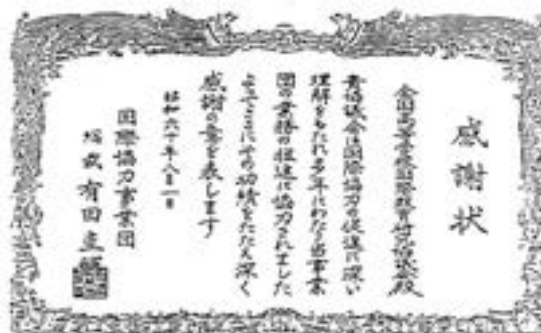 感謝状
全国高等学校国際教育研究協議会殿
貴協議会は国際協力の促進に深い
理解をもたれ多年にわたる当事業
団の業務の推進に協力されました
よってここにその功績をたたえ深く
感謝の意を表します
昭和六十年八月一日
国際協力事業団
総裁 有田圭輔